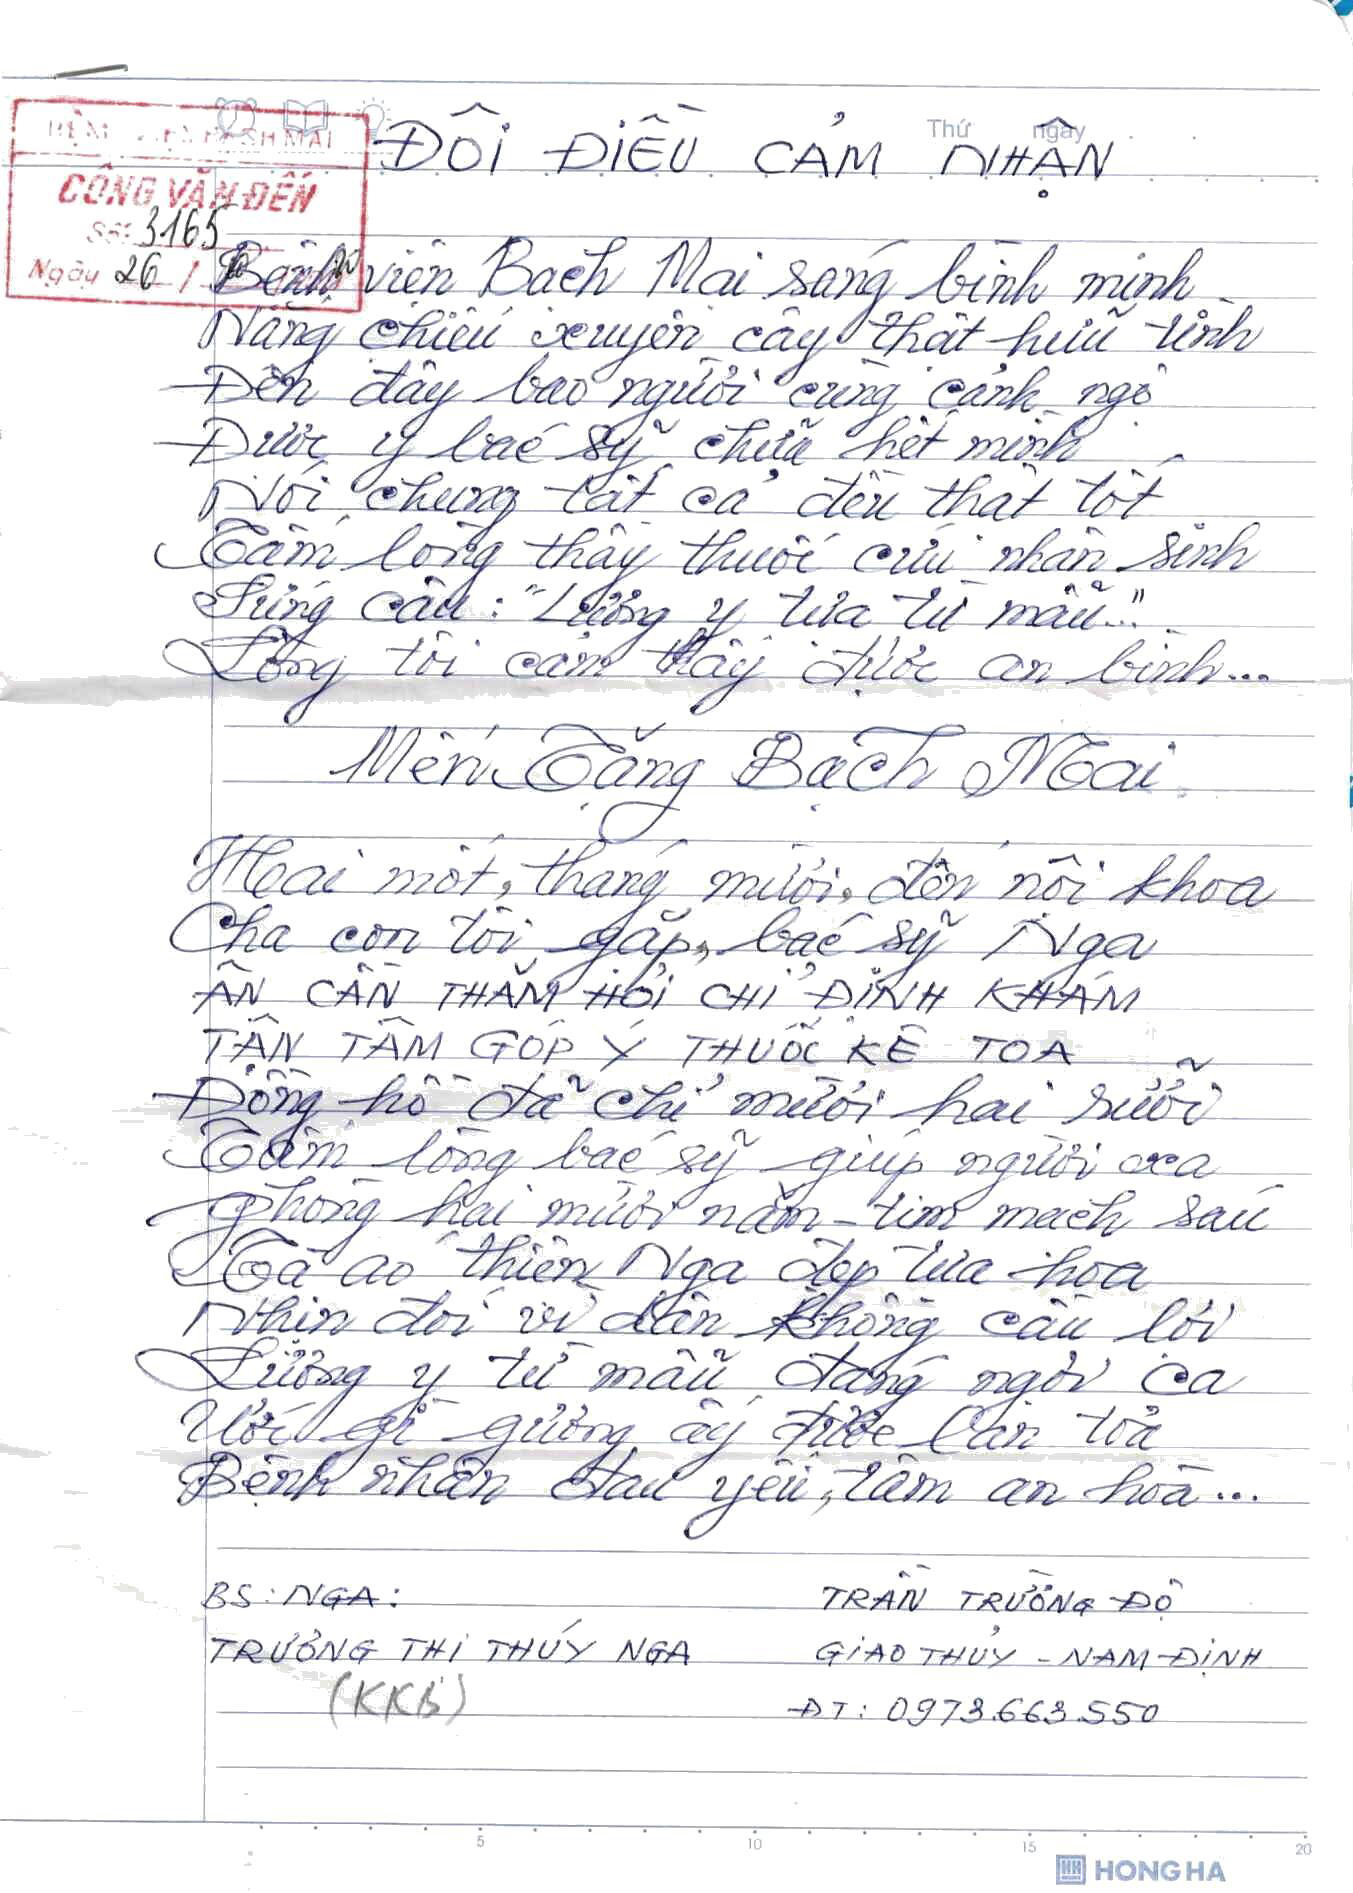 Thứ ngày
ĐÔI ĐIỀU CẢM NHẬN
BỆNH VIỆN BẠCH MAI
CÔNG VĂN ĐẾN
Số: 3165
Ngày 26 / 10
Bệnh viện Bạch Mai sáng bình minh
Nắng chiếu xuyên cây thật hữu tình
Đến đây bao người cùng cảnh ngộ
Được y bác sỹ chữa hết mình
Nói chung tất cả đều thật tốt
Tấm lòng thầy thuốc cứu nhân sinh
Xứng câu: "Lương y tựa từ mẫu..."
Lòng tôi cảm thấy được an bình...
Mến Tặng Bạch Mai
Hai mốt, tháng mười, đến nội khoa
Cha con tôi gặp, bác sỹ Nga
ÂN CẦN THĂM HỎI CHỈ ĐỊNH KHÁM
TẬN TÂM GÓP Ý THUỐC KÊ TOA
Đồng hồ đã chỉ mười hai rưỡi
Tấm lòng bác sỹ giúp người xa
Phòng hai mươi năm - tim mạch sáu
Tà áo thiên Nga đẹp tựa hoa
Nhịn đói vì dân không cầu lợi
Lương y từ mẫu đáng ngợi ca
Ước gì gương ấy được lan tỏa
Bệnh nhân đau yếu, tâm an hòa...
BS: NGA:
TRƯƠNG THỊ THÚY NGA
(KKB)
TRẦN TRƯỜNG ĐỘ
GIAO THỦY - NAM ĐỊNH
ĐT: 0973.663.550
5 10 15 20
HH HONG HA